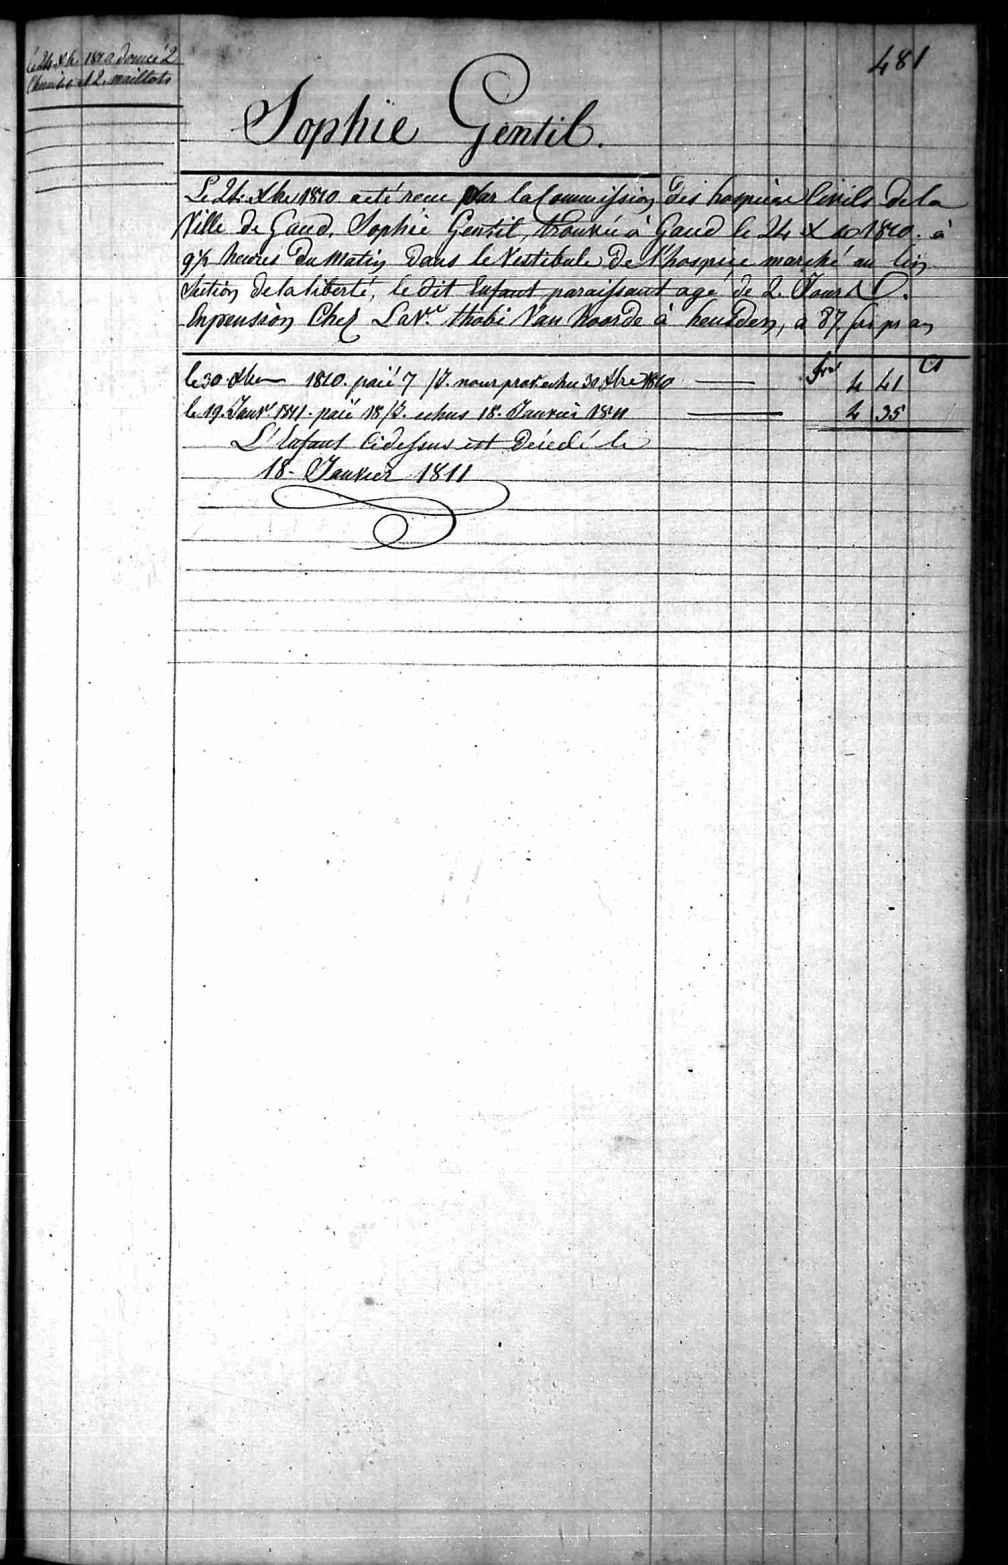 481
le 24 Xbre 1810 donné 2
Chemises et 2. maillots
Sophie Gentil.
Le 24. Xbre 1810 a eté recu par la Commission des hospices Civils de la
Ville de Gand, Sophie Gentil, trouvée à Gand le 24 Xbre 1810. à
9½ heures du Matin dans le Vestibule de l'hospice marché au lin
Section de la liberté, le dit Enfant paraissant agé de 2. Jours
En pension Chez La Ve. Van Hoorde à heusden, a 87 frs pr an
frs Cs
le 30. Xbre 1810. paié 7 /J. echu 30 Xbre 1810 4 41
le 19. Janvr 1811. paié 18 /J. echus 18. Janvier 1811 4 35
L'Enfant Cidessus est Décedé le
18. Janvier 1811